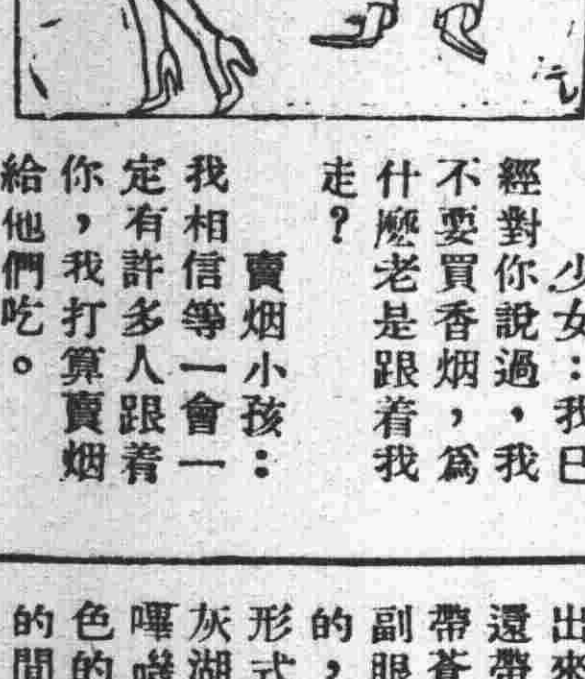 少女：我已
經對你說過，我
不要買香烟，爲
什麼老是跟着我
走？
賣烟小孩：
我相信等一會一
定有許多人跟着
你，我打算賣烟
給他們吃。
出來
還帶
帶蒼
副眼
的，
形式
灰湖
嗶嘰
色的
的間